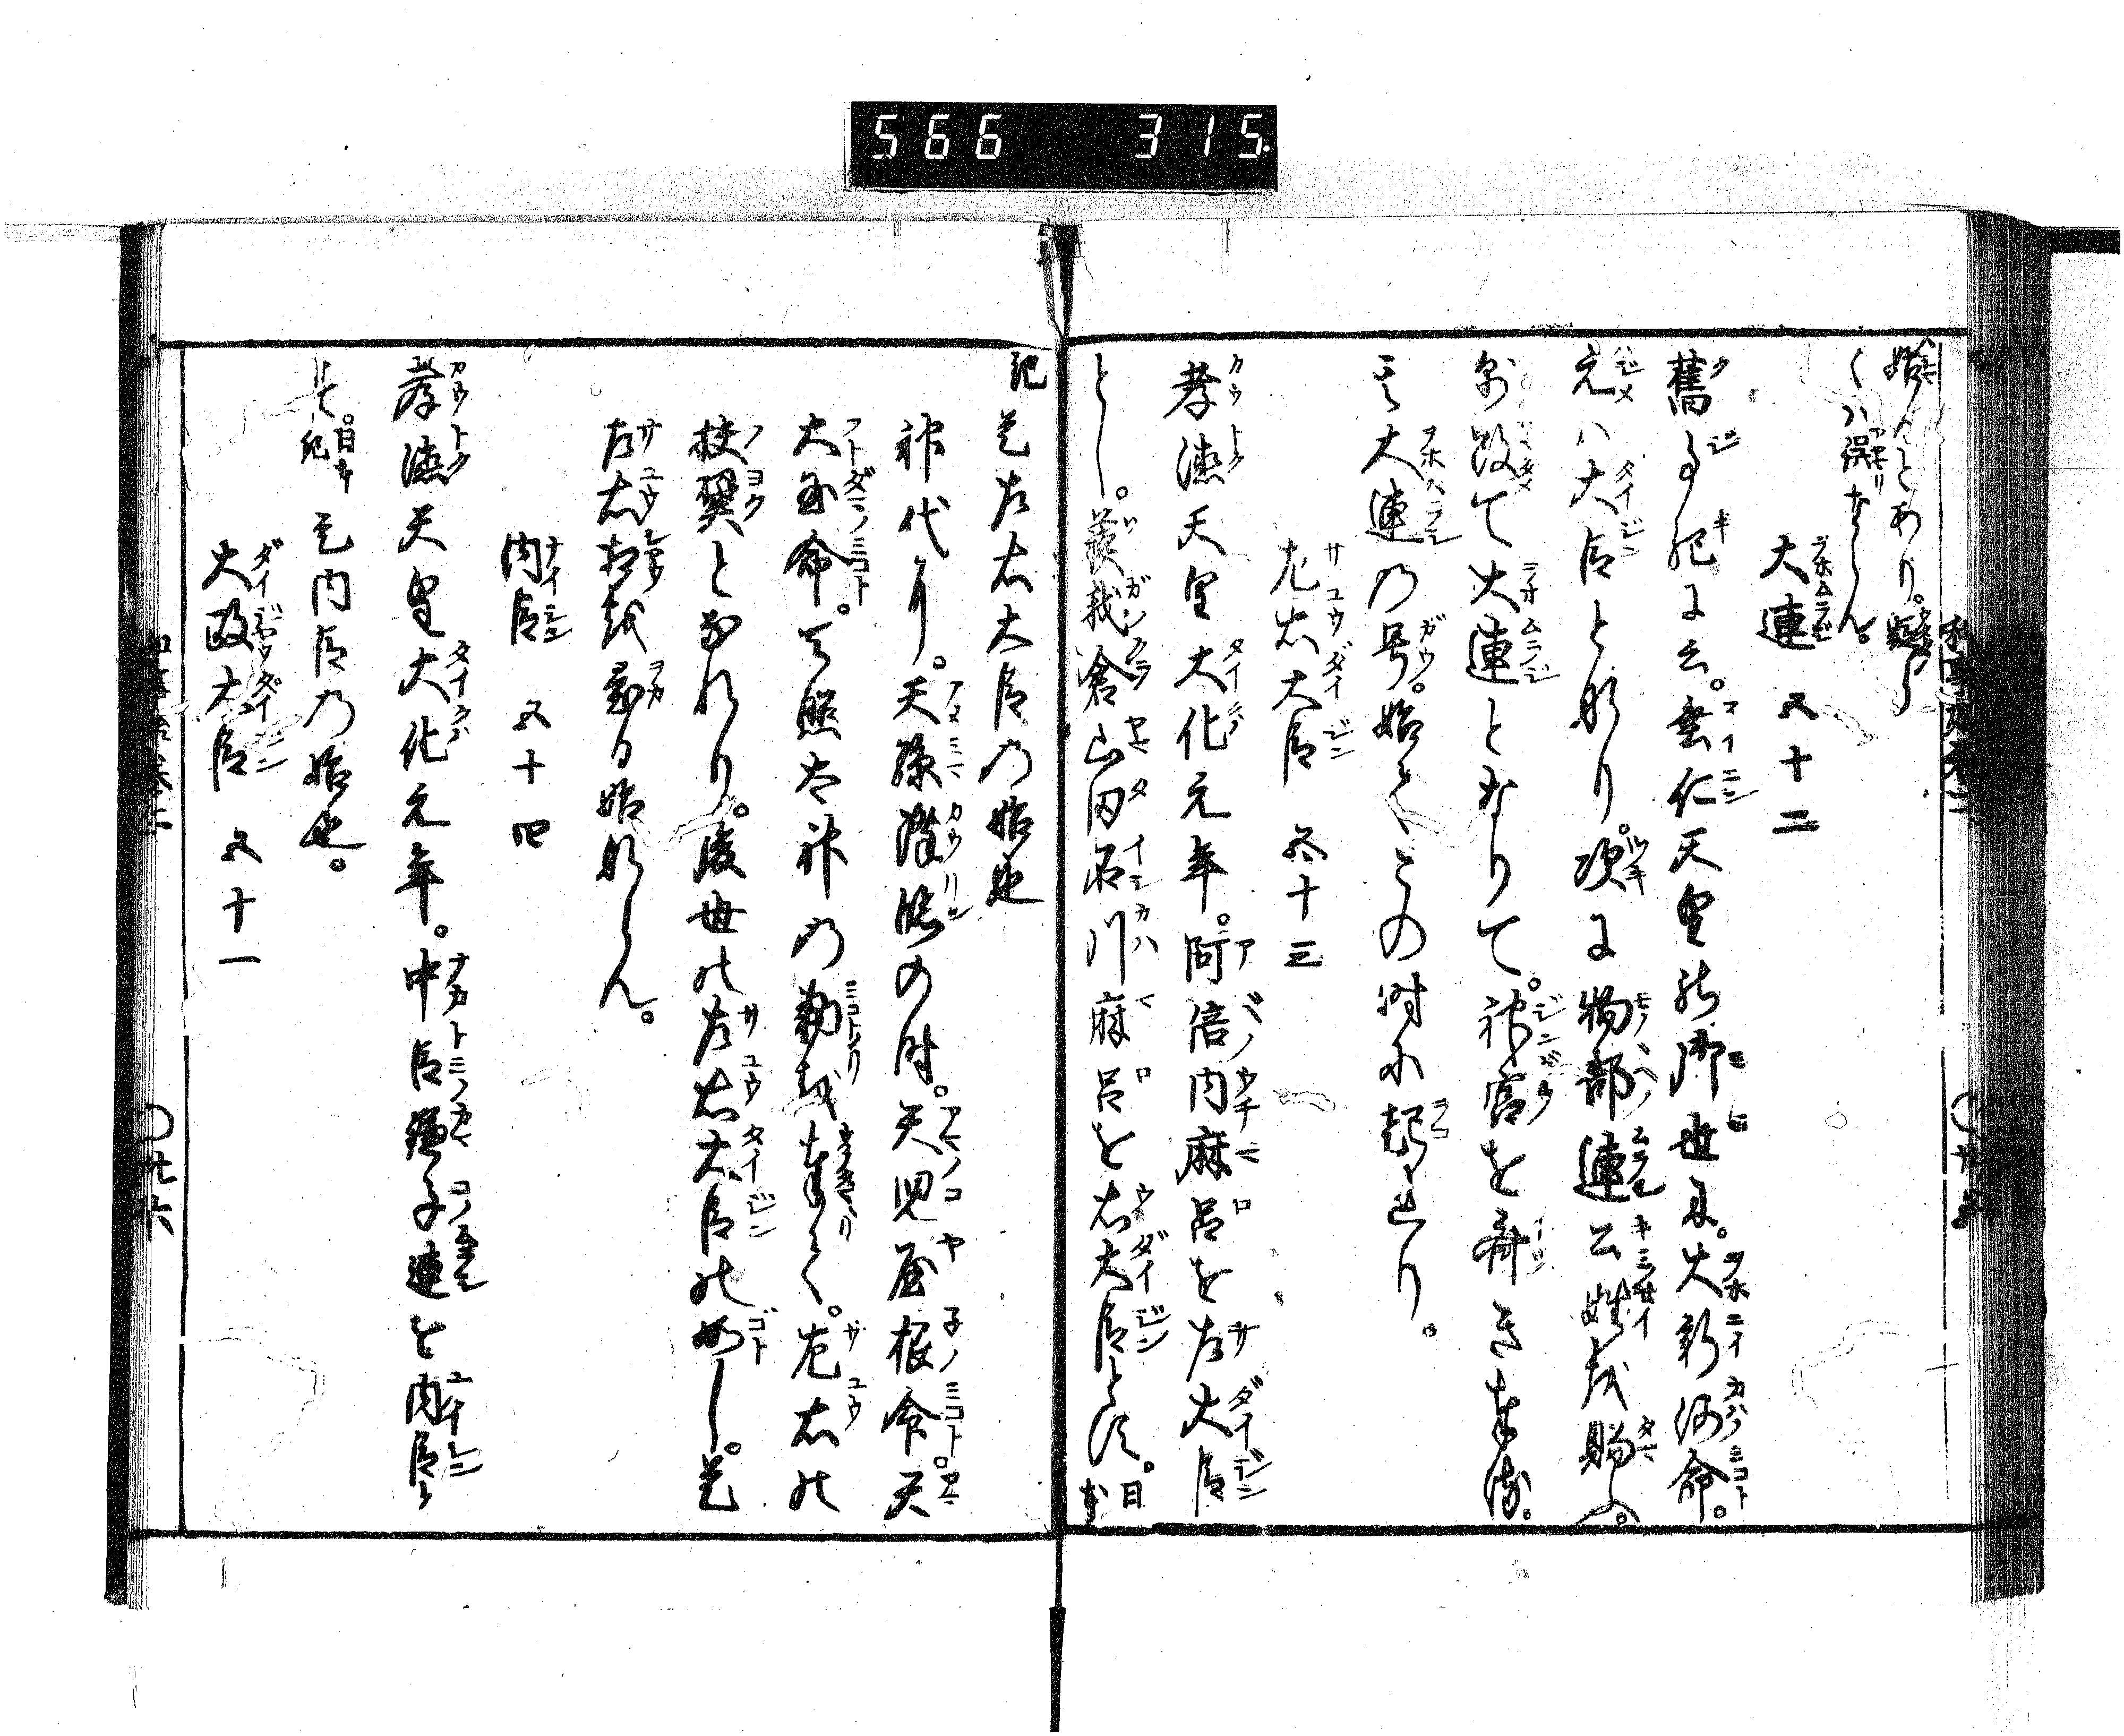 566 315
始んとあり。疑らくハ誤ならん。
大連 五十二
舊事紀に云。垂仁天皇の御世に。大新河命。
元ハ大臣と那り。次に物部連公姓を賜ふ。
改て大連となりて。神宮を齋き奉る。
大連の号。始てこの時に起れり。
左右大臣 五十三
孝德天皇大化元年。阿倍内麻呂を左大臣
とし。蘇我倉山田石川麻呂を右大臣とす。日本
紀 是左右大臣の始也
神代より。天孫降臨の時。天児屋根命。天
太玉命。天照太神の勅を奉て。左右の
扶翼となれり。後世の左右大臣の如し。是
左右相を置る始ならん。
内臣 五十四
孝德天皇大化元年。中臣鎌子連を内臣と
す。日本紀 是内臣の始也。
大政大臣 五十一